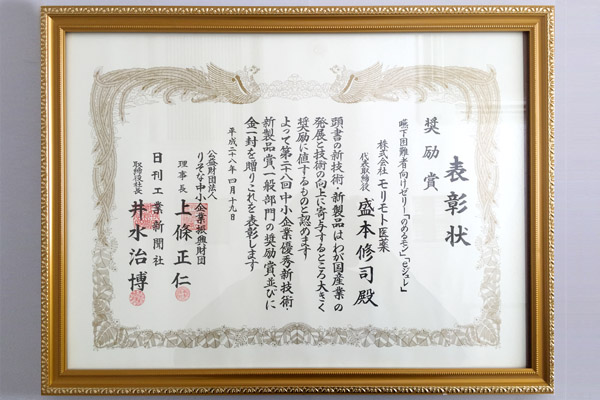 表彰状
奨励賞
嚥下困難者向けゼリー「ののるモン」、「eジュレ」
株式会社 モリモト医薬
代表取締役 盛本修司殿
頭書の新技術・新製品はわが国産業の
発展と技術の向上に寄与するところ大きく
奨励に値するものと認めます
よって第二十八回中小企業優秀新技術・
新製品賞一般部門の奨励賞並びに
金一封を贈りこれを表彰します
平成二十八年四月十九日
公益財団法人
りそな中小企業振興財団
理事長 上條正仁
日刊工業新聞社
取締役社長 井水治博